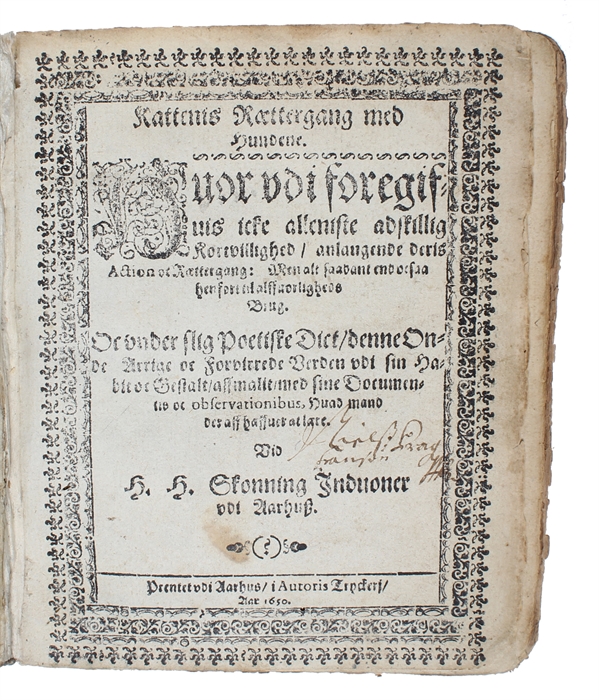 Kattenis Rættergang med
Hundene.
Huor vdi foregif-
uis icke alleniste adskillig
Kortvillighed / anlangende deris
Action oc Rættergang: Men alt saadant end ocsaa
herfort til alffuorligheds
Brug.
Oc vnder slig Poetiske Dict / denne On-
de Arrige oc Forvirrede Verden vdi sin Ha-
bit oc Gestalt / affmalit / med sine Documen-
tis oc observationibus, Huad mand
der aff haffuer at lære.
Vid
H. H. Skonning Induoner
vdi Aarhuß.
(?)
Prentet vdi Aarhus / i Autoris Tryckerj /
Aar 1650.